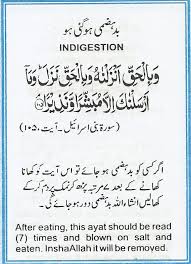 بدہضمی ہو گئی ہو
INDIGESTION
وَبِالْحَقِّ اَنْزَلْنٰهُ وَبِالْحَقِّ نَزَلَ ؕ وَمَاۤ
اَرْسَلْنٰكَ اِلَّا مُبَشِّرًا وَّنَذِیْرًا ﴿۱۰۵﴾
(سورۃ بنی اسرائیل۔ آیت، ۱۰۵)
اگر کسی کو بدہضمی ہو جائے تو اس آیت کو کھانا
کھانے کے بعد ۷ مرتبہ پڑھ کر نمک پر دم کر کے
کھالیں انشاء اللہ بدہضمی دور ہو جائے گی۔
After eating, this ayat should be read
(7) times and blown on salt and
eaten. InshaAllah it will be removed.